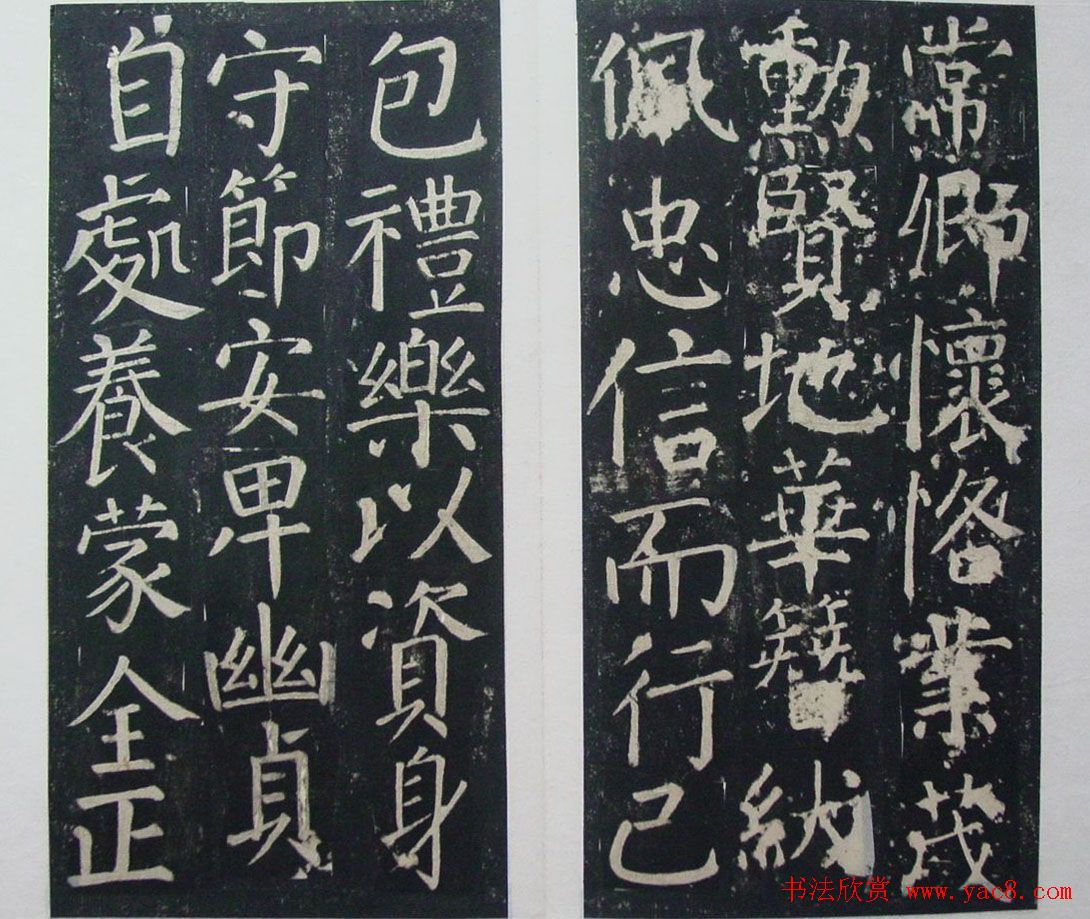 常卿懷恪業茂
勳賢地華簪紱
佩忠信而行己
包禮樂以資身
守節安卑幽貞
自處養蒙全正
书法欣赏 www.yac8.com